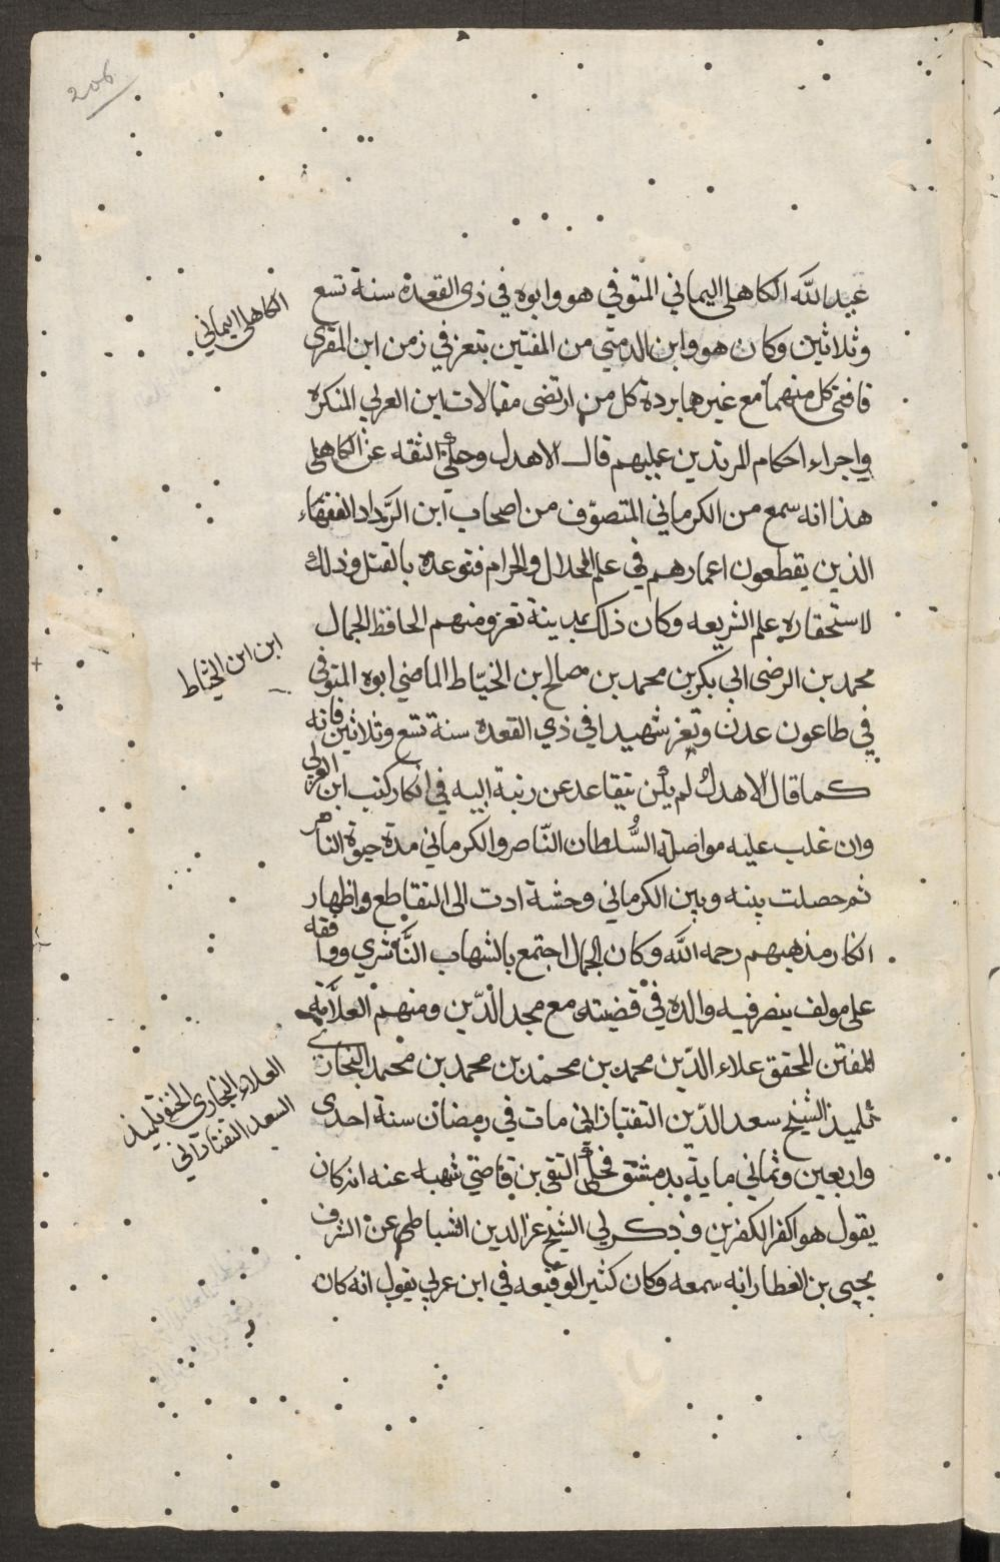 206
عبد الله الكاهلي اليماني المتوفي هو وابوه في ذي القعدة سنة تسع
الكاهلي اليماني
وثلاثين وكان هو وابن الدمتي من المفتين بتعز في زمن ابن المقرى
فافتى كل منهما مع غيرهما بردة كل من ارتضى مقالات ابن العربي المنكره
واجراء احكام المرتدين عليهم قال الاهدل وحكى الثقه عن الكاهلي
هذا انه سمع من الكرماني المتصوّف من اصحاب ابن الرّداد الفقهاء
الذين يقطعون اعمارهم في علم الحلال والحرام فتوعده بالقتل وذلك
لاستحقاره علم الشريعه وكان ذلك بمدينة تعز ومنهم الحافظ الجمال
محمد بن الرضى ابي بكر بن محمد بن صالح بن الخيّاط الماضي ابوه المتوفى
ابن ابن الخيّاط
في طاعون عدن وتعز شهيدا في ذي القعده سنة تسع وثلاثين فانه
كما قال الاهدل لم يكن يتقاعد عن رتبة ابيه في انكار كتب ابن العربي
وان غلب عليه مواصلة السُّلطان النّاصر والكرماني مدة حيوة الناصر
ثم حصلت بينه وبين الكرماني وحشة ادت الى التقاطع واظهار
انكار مذهبهم رحمه الله وكان الجمال اجتمع بالشهاب النَّاشري ووافقه
على مولف ينصر فيه والده في قضيته مع مجد الدّين ومنهم العلاّمه
المفتن المحقق علاء الدّين محمد بن محمد بن محمد بن محمد البخاري
العلاء البخاري الحنفي تلميذ
السعد التفتازاني
تلميذ الشيخ سعد الدّين التفتازاني مات في رمضان سنة احدى
واربعين وثماني ماية بدمشق فحكى التقي بن قاضي شهبه عنه انه كان
يقول هو اكفر الكفرين وذكر لي الشيخ عز الدين السنباطي عن الشرف
يحيى بن العطار انه سمعه وكان كثير الوقيعه في ابن عربي يقول انه كان